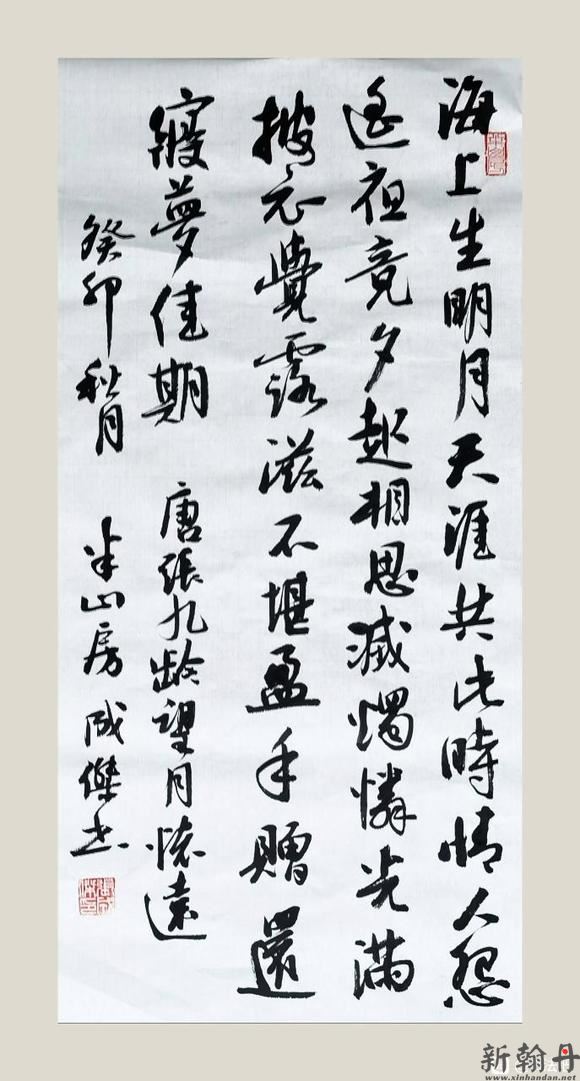 海上生明月天涯共此時情人怨
遙夜竟夕起相思滅燭憐光滿
披衣覺露滋不堪盈手贈還
寢夢佳期 唐張九龄望月懷遠
癸卯秋月 半山房成傑书
新翰丹
www.xinhandan.net